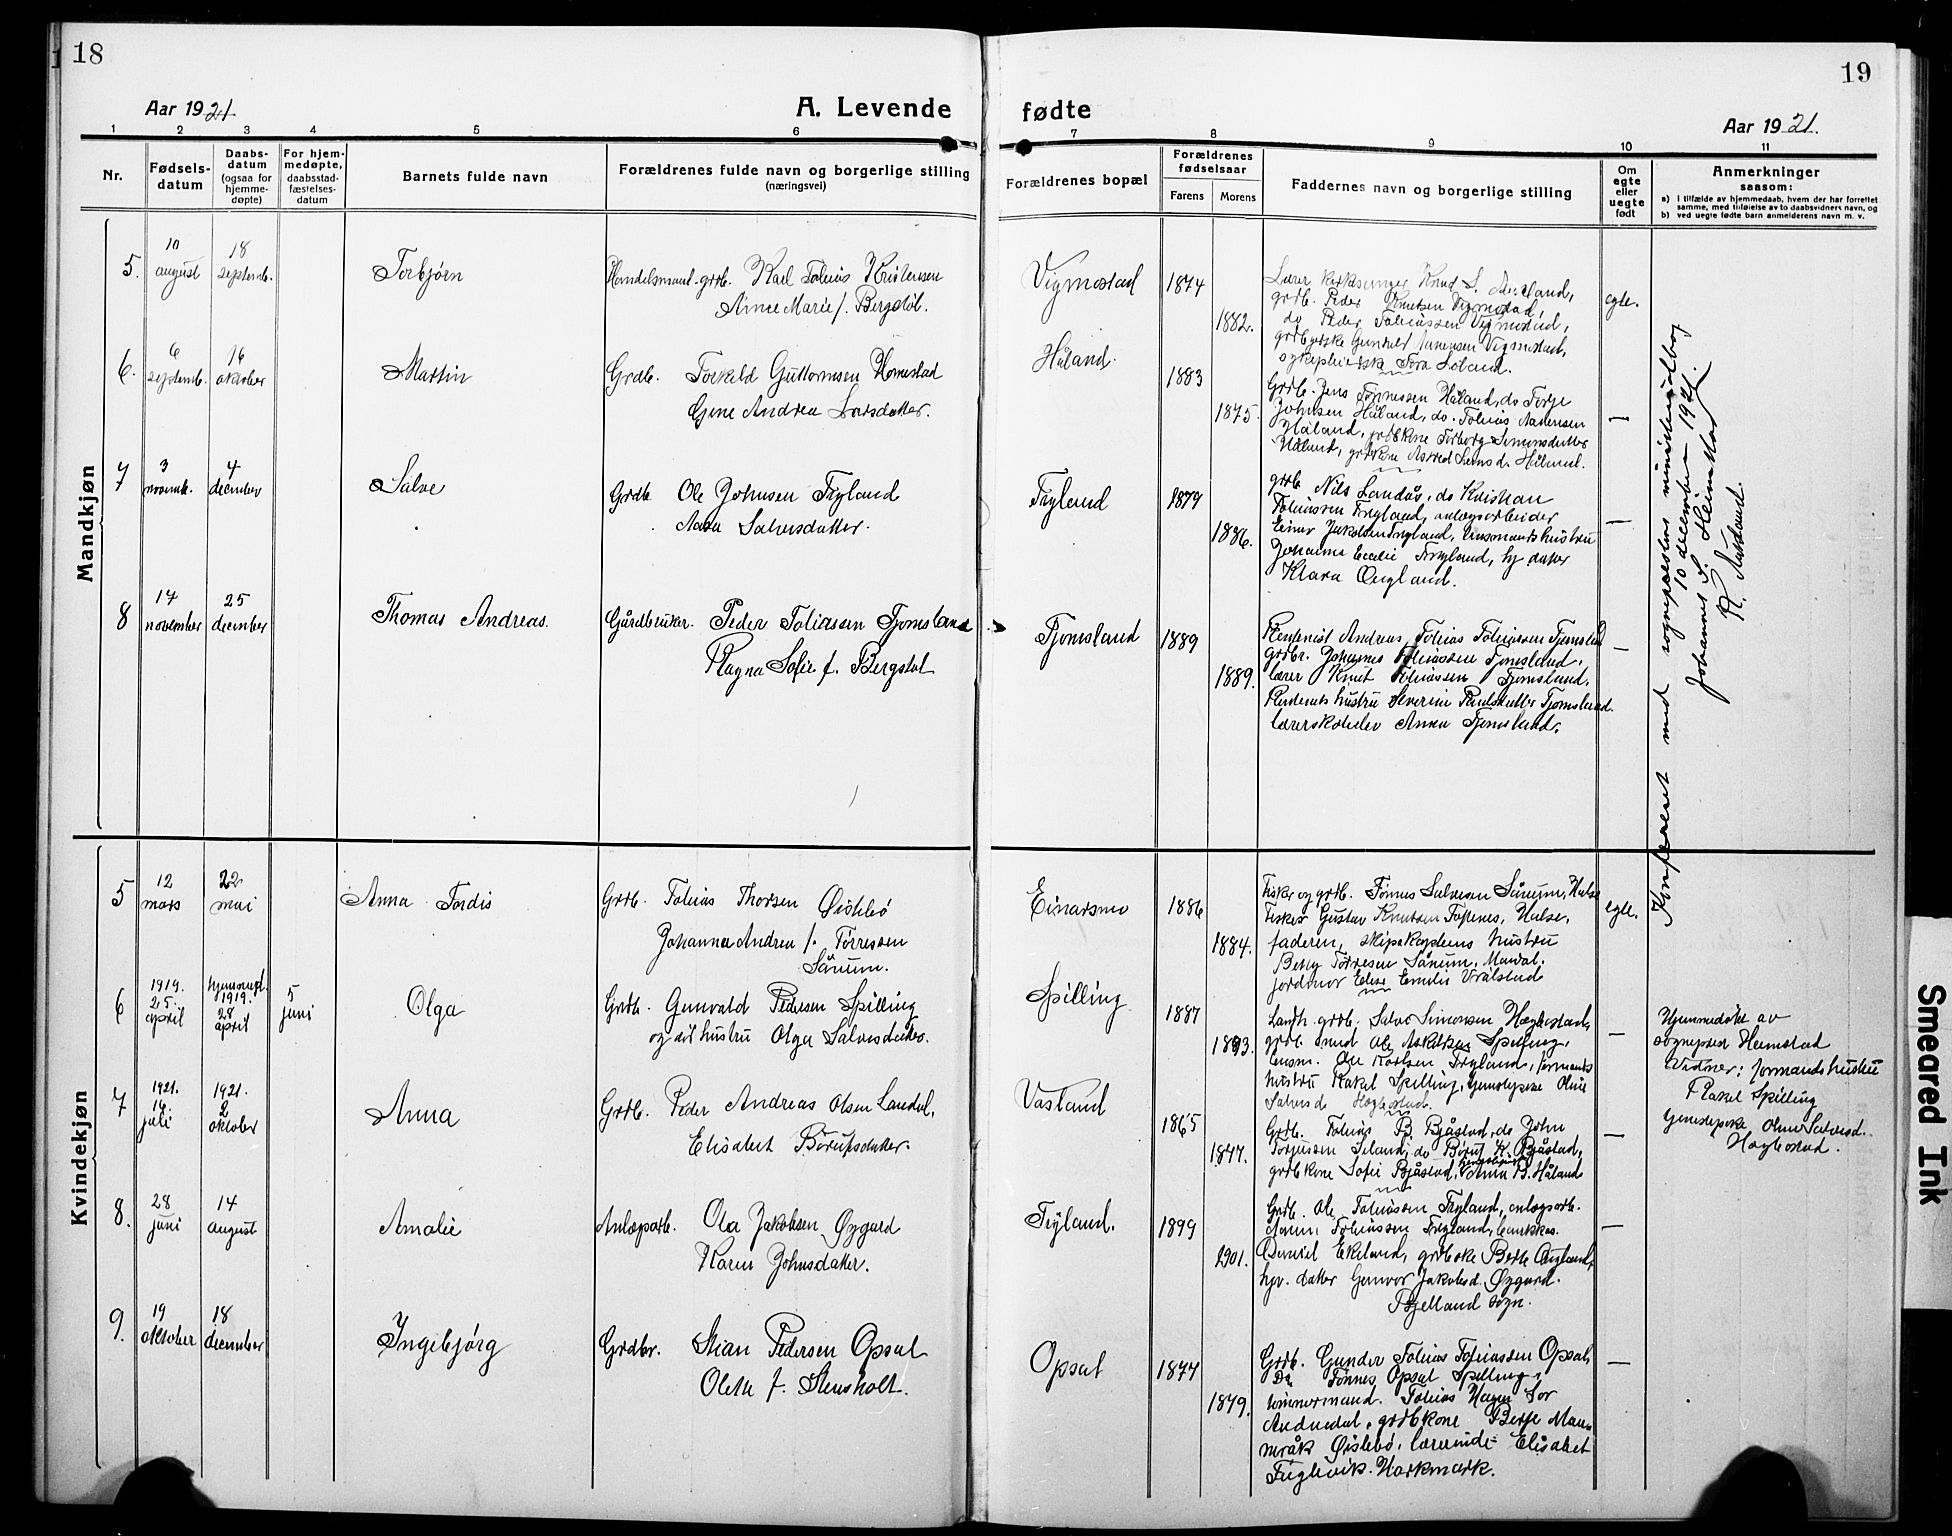 18
19
Aar 1921.
A. Levende fødte
Aar 1921.
1 2 3 4 5 6 7 8 9 10 11
Nr.
Fødsels-
datum
Daabs-
datum
(ogsaa for
hjemme-
døpte)
For hjem-
medøpte,
daabsstad-
fæstelses-
datum
Barnets fulde navn
Forældrenes fulde navn og borgerlige stilling
(næringsvei)
Forældrenes bopæl
Forældrenes
fødselsaar
Farens Morens
Faddernes navn og borgerlige stilling
Om
egte
eller
uegte
født
Anmerkninger
saasom:
a) I tilfælde av hjemmedaab, hvem der har forrettet
samme, med tilføielse av to daabsvidners navn, og
b) ved uegte fødte barn anmelderens navn m. v.
Mandkjøn
5. 10 august 18 septemb. Torbjørn
Handelsmand grb. Karl Tobias Kristensen
Anne Marie f. Bergstøl.
Vigmostad 1874 1882.
Lærer kirkesanger Knud S.
grdb. Peder Knutsen Vigmostad,
do Peder Tobiassen Vigmostad,
Vigmostad,
Tora Loland.
egte.
6. 6 septemb. 16 oktober Martin
Grdb. Torkeld Guttormsen Homestad
Gine Andrea Larsdatter.
Håland. 1883 1875.
Grdb. Jens Tønnessen Håland, do Torje
Johnsen Håland, do. Tobias Aadensen
Håland, grdbkone Torborg Simonsdatter
Håland, grdbkone
—
7 3 novemb. 4 december Salve
Grdb. Ole Johnsen Tryland
Aasa Salvesdatter.
Tryland 1879 1886.
grdb. Nils Landås, do Kristian
Tobiassen Tryland, anlægsarbeider
Einar Jakobsen Tryland, husmandshustru
Johanna Tryland, hj. datter
Klara Øigland.
—
8 14 november 25 december Thomas Andreas.
Gårdbruker. Peder Tobiassen Tjomsland
Ragna Sofie f. Bergstøl
Tjomsland 1889 1889.
Andreas Tobias Tobiassen Tjomsland
grdbr. Johannes Tobiassen Tjomsland,
lærer Knut Tobiassen Tjomsland,
hustru Severine Tjomsland.
Anna Tjomsland.
—
Konfereret med sogneprestens ministerialbog
10 december 1921.
Johannes S. Heimstad
K.
Kvindekjøn
5 12 mars 22 mai Anna Tordis
Grdb. Tobias Thorsen Øislebø
Johanna Andrea f. Tørressen
Sånum.
Einarsmo 1886 1884.
Fisker og grdb. Tønnes Salvesen Sånum, Halse
Fisker Gustav Knutsen Toftenes, Halse,
faderen, skipskapteins hustru
Betsy Tørresen Sånum, Mandal.
jordmor Emilie Vrålstad
egte.
6 1919. 25 april
1919. 28 april
5 juni
Olga
Grdb. Gunvald Pedersen Spilling
og dit hustru Olga Salvesdatter.
Spilling 1887 1893.
Landh. grdb. Salve Simonsen Høglestad,
grdb. Ole Askildsen Spilling,
Ole Karlsen Tryland, formands
hustru Rakel Spilling, tjenestepike Oline
Salvesd. Høglestad
—
Hjemmedøbt av
sogneprest Heimstad
Vidner: formandshustru
Rakel Spilling
tjenestepike Oline Salvesd.
Høglestad.
7 1921. juli
1921. 2 oktober
Anna
Grdb. Peder Andreas Olsen Landal,
Elisabet Børufsdatter.
Vasland 1865
Grdb. Tobias B. Bjåstad, do John
Torjussen do Børuf K. Bjåstad,
grdbkone Sofie Bjåstad, Anna B. Håland
—
8. 28 juni 14 august Amalie
Anlægsarb. Ola Jakobsen Øygard
Karen Johnsdatter.
Tryland. 1899 1901.
Grdb. Ole Tobiassen Tryland, anlægsarb.
Tobiassen Tryland,
Daniel Ekeland, grdbske Berte Øigland,
hjv. datter Gunvor Jakobsd Øygard.
Bjelland sogn.
—
9. 19 oktober 18 december Ingebjørg
Grdbr. Stian Pedersen Opsal
Olette f. Stensholt.
Opsal 1874 1879.
Grdb. Gunder Tobias Tobiassen Opsal,
Do Tønnes Opsal Spilling,
tømmermand. Tobias Hagen Sør
Audnedal, grdbkone Berte Mann
meråk Øislebø, lærerinde Elisabet
Fuglevik. Harkmark.
—
Smeared Ink